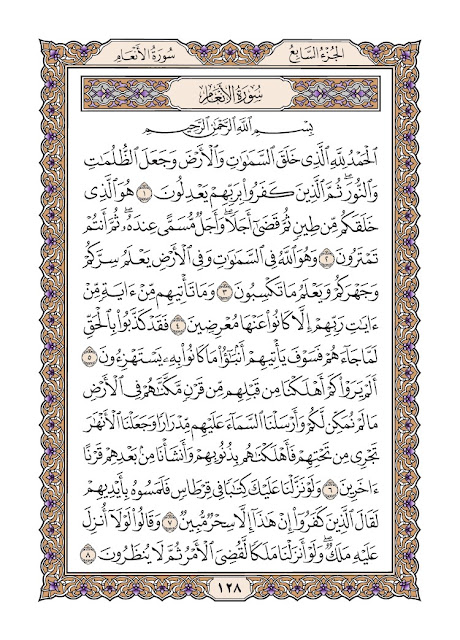 الجُزْءُ السَّابِعُ
سُورَةُ الأَنْعَامِ
سُورَةُ الأَنْعَامِ
بِسْمِ ٱللَّهِ ٱلرَّحْمَٰنِ ٱلرَّحِيمِ
ٱلْحَمْدُ لِلَّهِ ٱلَّذِى خَلَقَ ٱلسَّمَٰوَٰتِ وَٱلْأَرْضَ وَجَعَلَ ٱلظُّلُمَٰتِ
وَٱلنُّورَ ۖ ثُمَّ ٱلَّذِينَ كَفَرُوا۟ بِرَبِّهِمْ يَعْدِلُونَ ١ هُوَ ٱلَّذِى
خَلَقَكُم مِّن طِينٍ ثُمَّ قَضَىٰٓ أَجَلًا ۖ وَأَجَلٌ مُّسَمًّى عِندَهُۥ ۖ ثُمَّ أَنتُمْ
تَمْتَرُونَ ٢ وَهُوَ ٱللَّهُ فِى ٱلسَّمَٰوَٰتِ وَفِى ٱلْأَرْضِ ۖ يَعْلَمُ سِرَّكُمْ
وَجَهْرَكُمْ وَيَعْلَمُ مَا تَكْسِبُونَ ٣ وَمَا تَأْتِيهِم مِّنْ ءَايَةٍ مِّنْ
ءَايَٰتِ رَبِّهِمْ إِلَّا كَانُوا۟ عَنْهَا مُعْرِضِينَ ٤ فَقَدْ كَذَّبُوا۟ بِٱلْحَقِّ
لَمَّا جَآءَهُمْ ۖ فَسَوْفَ يَأْتِيهِمْ أَنۢبَٰٓؤُا۟ مَا كَانُوا۟ بِهِۦ يَسْتَهْزِءُونَ ٥
أَلَمْ يَرَوْا۟ كَمْ أَهْلَكْنَا مِن قَبْلِهِم مِّن قَرْنٍ مَّكَّنَّٰهُمْ فِى ٱلْأَرْضِ
مَا لَمْ نُمَكِّن لَّكُمْ وَأَرْسَلْنَا ٱلسَّمَآءَ عَلَيْهِم مِّدْرَارًا وَجَعَلْنَا ٱلْأَنْهَٰرَ
تَجْرِى مِن تَحْتِهِمْ فَأَهْلَكْنَٰهُم بِذُنُوبِهِمْ وَأَنشَأْنَا مِنۢ بَعْدِهِمْ قَرْنًا
ءَاخَرِينَ ٦ وَلَوْ نَزَّلْنَا عَلَيْكَ كِتَٰبًا فِى قِرْطَاسٍ فَلَمَسُوهُ بِأَيْدِيهِمْ
لَقَالَ ٱلَّذِينَ كَفَرُوٓا۟ إِنْ هَٰذَآ إِلَّا سِحْرٌ مُّبِينٌ ٧ وَقَالُوا۟ لَوْلَآ أُنزِلَ
عَلَيْهِ مَلَكٌ ۖ وَلَوْ أَنزَلْنَا مَلَكًا لَّقُضِىَ ٱلْأَمْرُ ثُمَّ لَا يُنظَرُونَ ٨
١٢٨